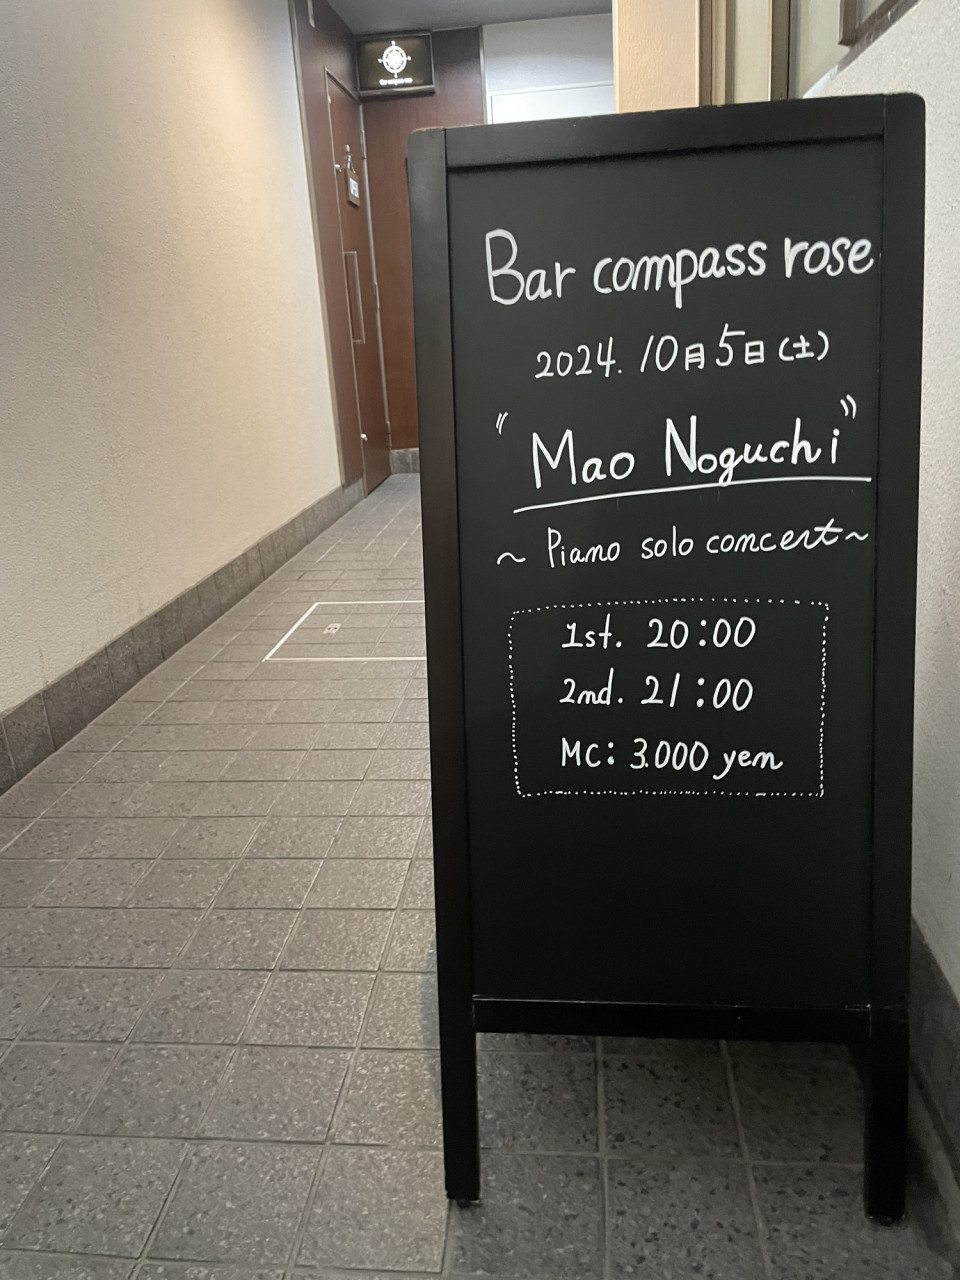 Bar compass rose
2024. 10月5日(土)
"Mao Noguchi"
~ Piano solo concert ~
1st. 20:00
2nd. 21:00
MC: 3.000 yen